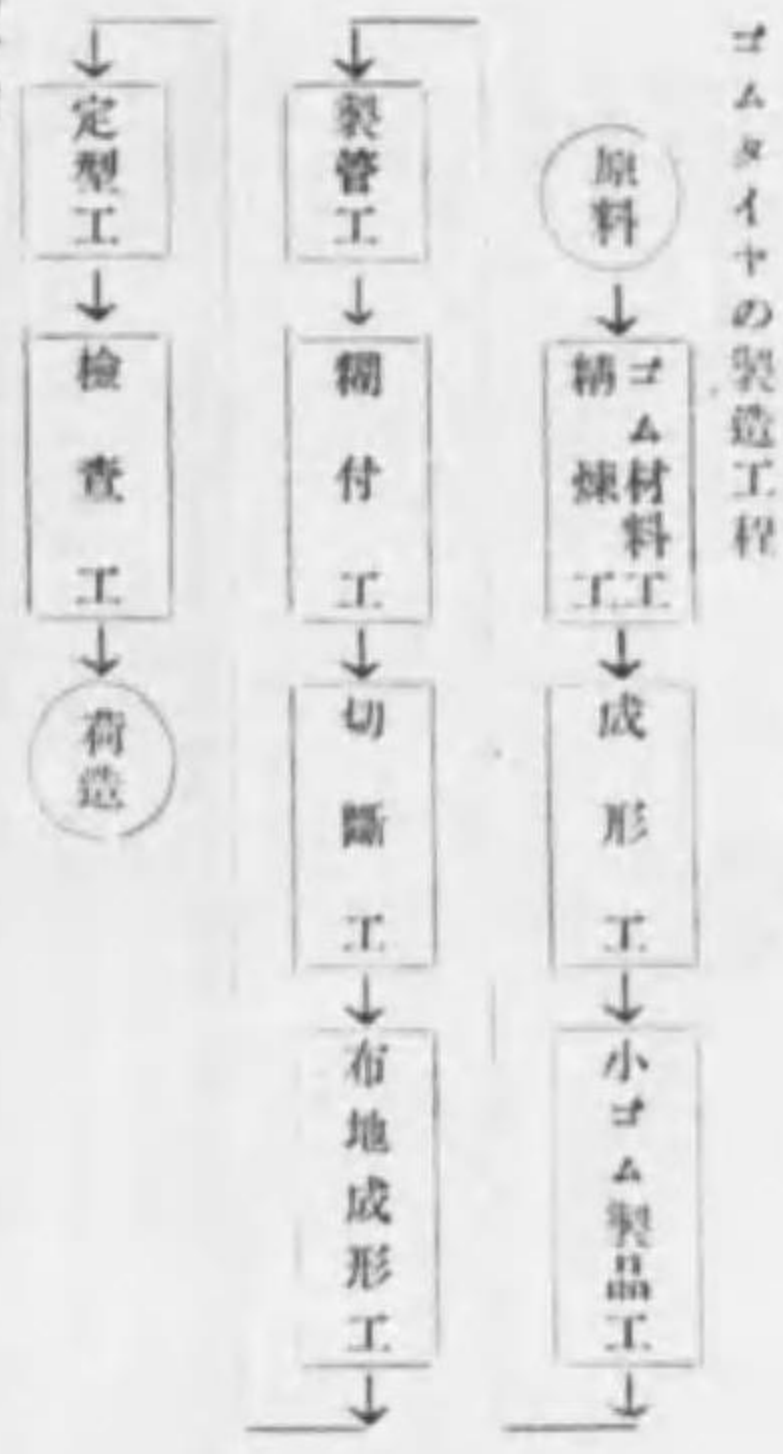 ゴムタイヤの製造工程
原料
ゴム材料工
精煉工
成形工
小ゴム製品工
製管工
糊付工
切斷工
布地成形工
定型工
檢査工
荷造